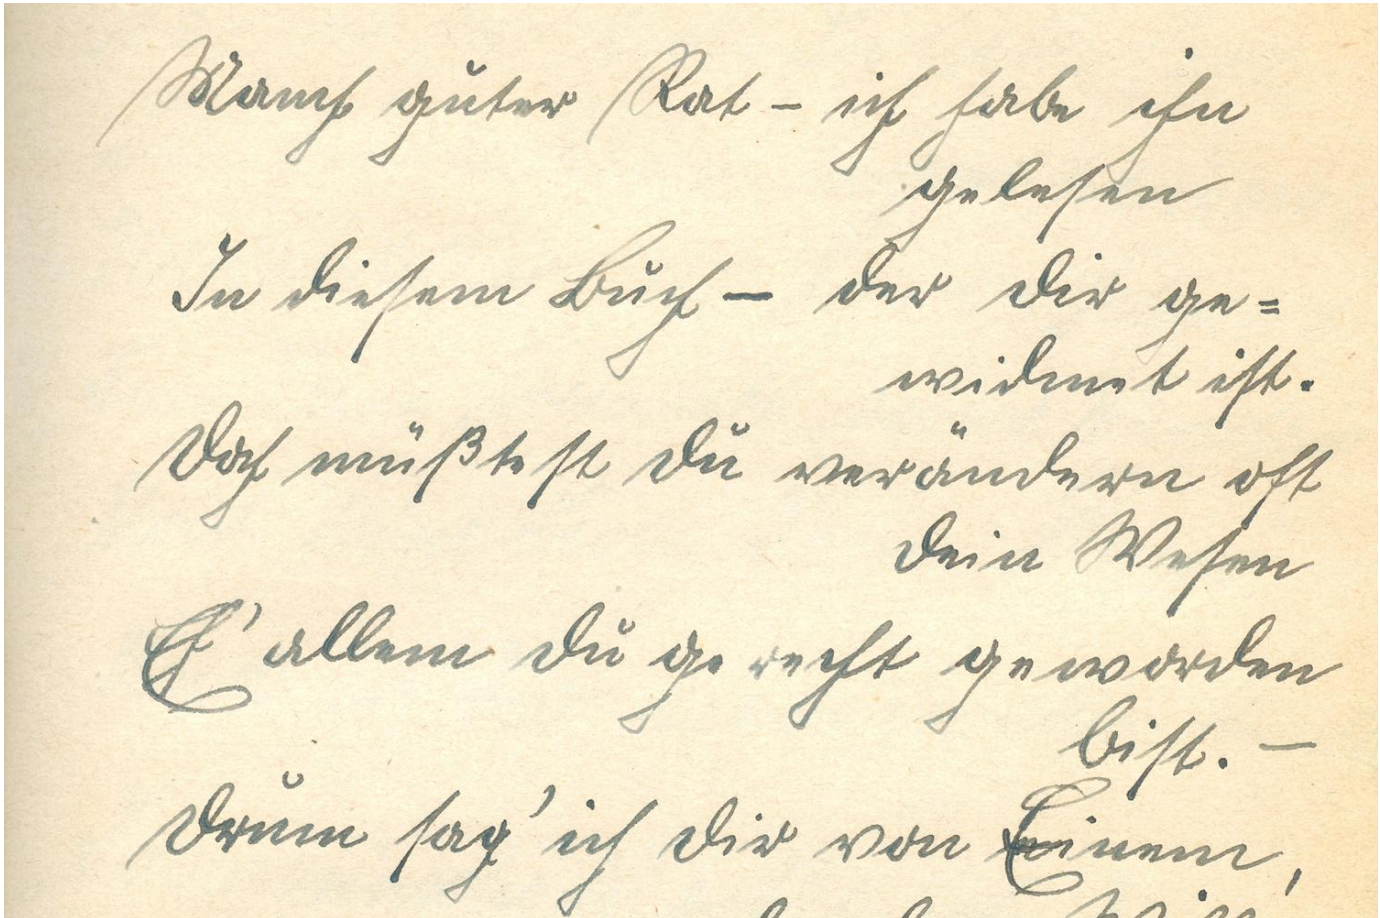 Manch guter Rat – ich habe ihn
gelesen
In diesem Buch – der dir ge=
widmet ist.
Doch müßtest du verändern oft
dein Wesen
Eh' allem du gerecht geworden
bist. –
Drum sag' ich dir von Einem,